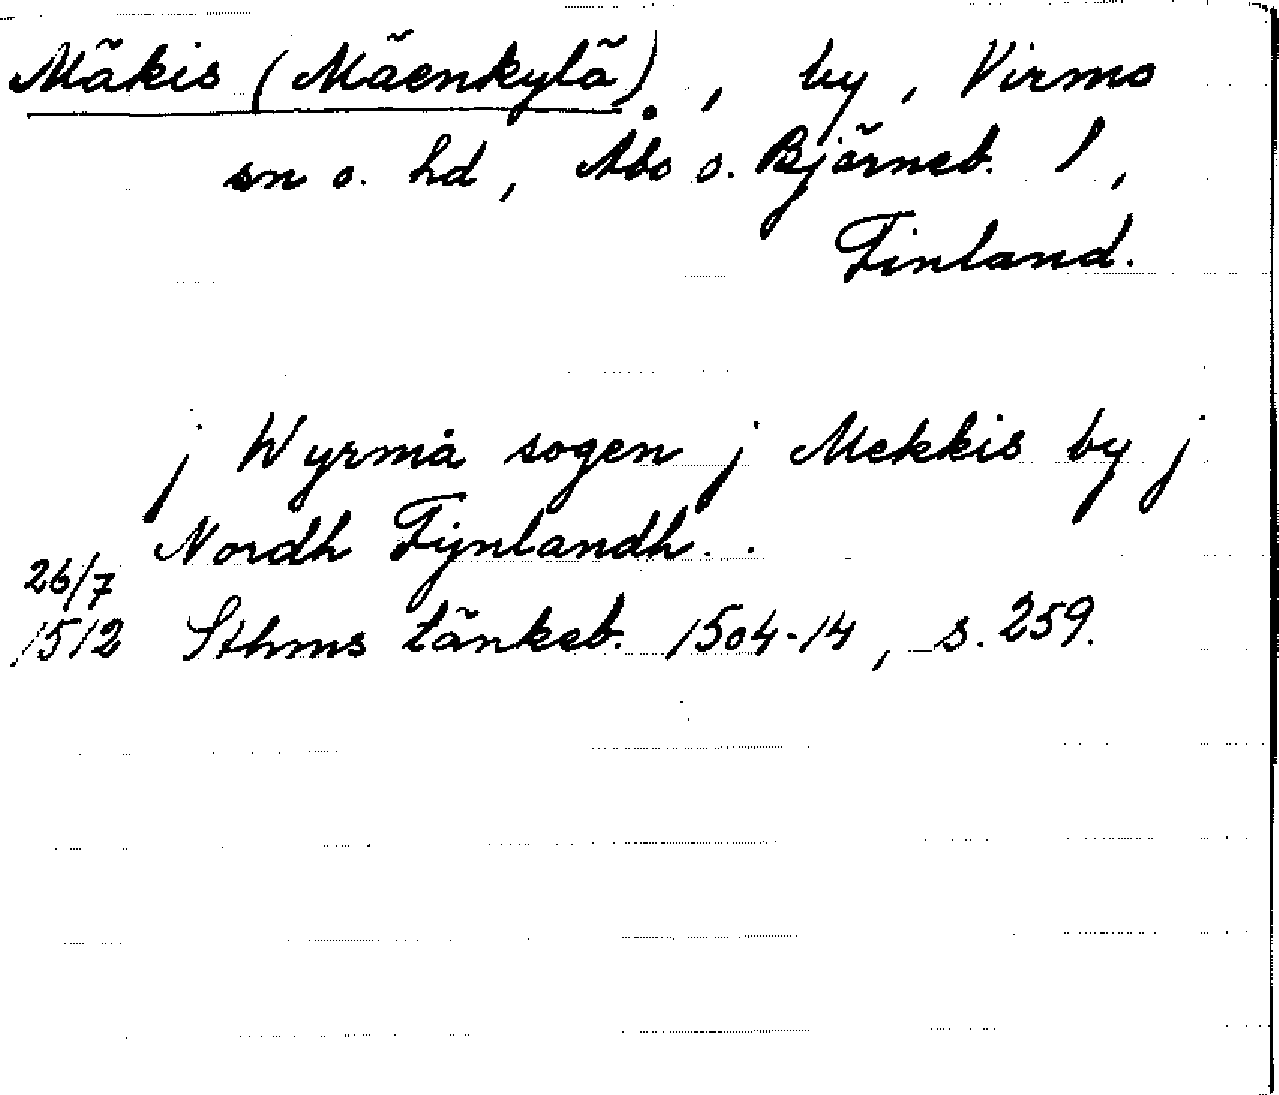 Mäkis (Mäenkylä)., by, Virmo
sn o. hd, Åbo o. Björneb. l,
Finland.
j Wyrmå sogen j Mekkis by j
Nordh Fijnlandh. .
26/7
1512 Sthms tänkeb. 1504-14, s. 259.